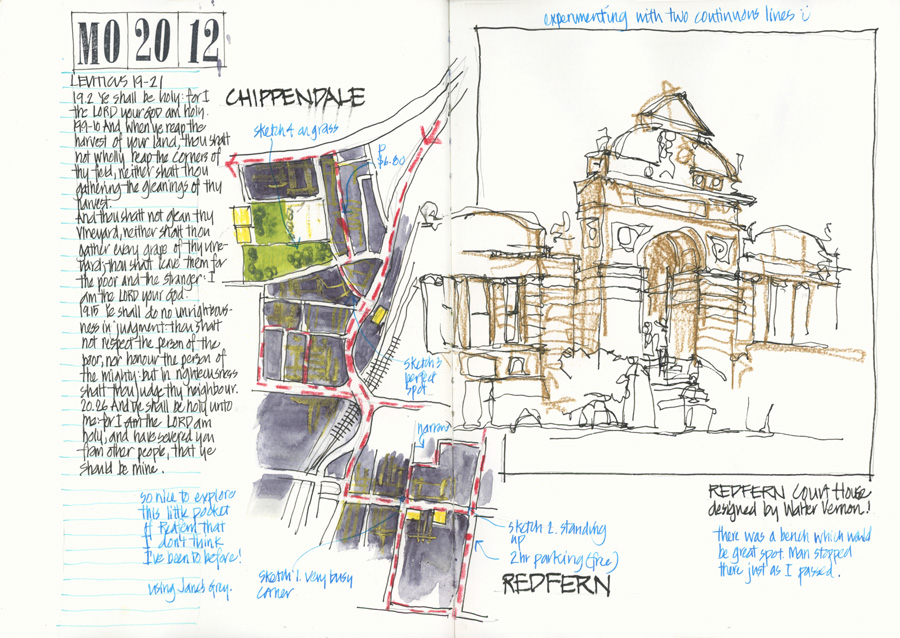 MO 20 12
LEVITICUS 19-21
19.2 Ye shall be holy: for I
the LORD your GOD am holy.
19.9-10 And when ye reap the
harvest of your land, thou shalt
not wholly reap the corners of
thy field, neither shalt thou
gathering the gleanings of thy
harvest.
And thou shalt not glean thy
vineyard, neither shalt thou
gather every grape of thy vine-
yard; thou shalt leave them for
the poor and the stranger: I
am the LORD your God.
19.15 Ye shall do no unrighteous-
ness in judgment: thou shalt
not respect the person of the
poor, nor honour the person of
the mighty: but in righteousness
shalt thou judge thy neighbour.
20.26 And ye shall be holy unto
me: for I am the LORD am
holy, and have severed you
from other people, that ye
should be mine.
so nice to explore
this little pocket
of Redfern that
I don't think
I've been to before!
using Jane's Grey.
CHIPPENDALE
sketch 4 on grass
P
$6.80
sketch 3
perfect
spot
narrow
sketch 2. standing
up
2hr parking (free)
sketch 1. very busy
corner
REDFERN
experimenting with two continuous lines
REDFERN Court House
designed by Walter Vernon!
there was a bench which would
be great spot. Man stopped
there just as I passed.